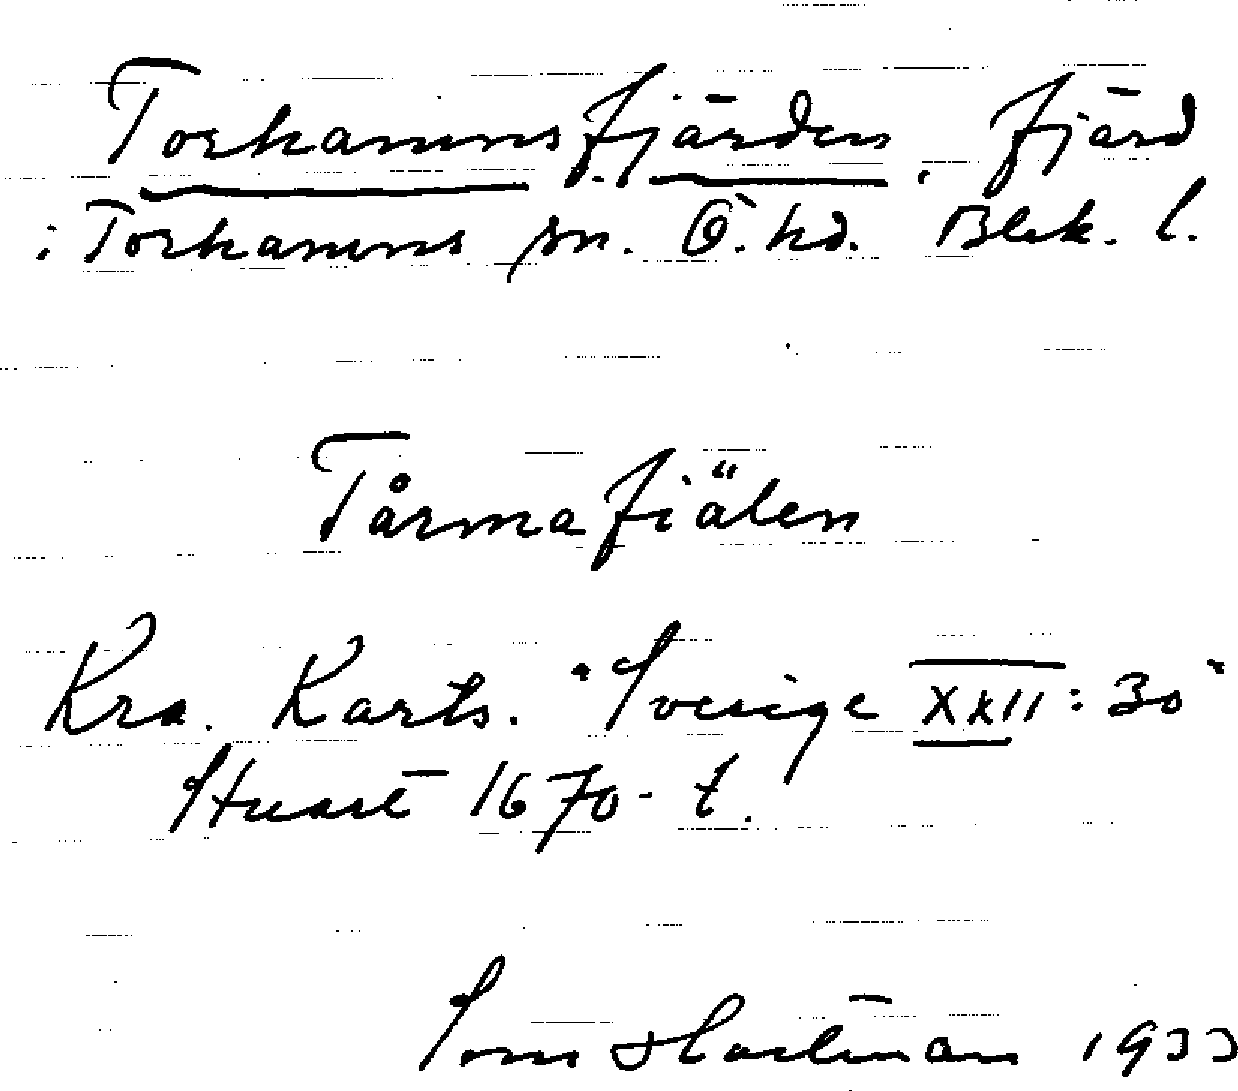 Torhamnsfjärden, fjärd
i Torhamns sn. Ö. hd. Blek. l.
Tårmafiälen
Kra. Kartb. "Sverige XXII: 30"
Stuart 1670- t.
Tom Hartman 1933